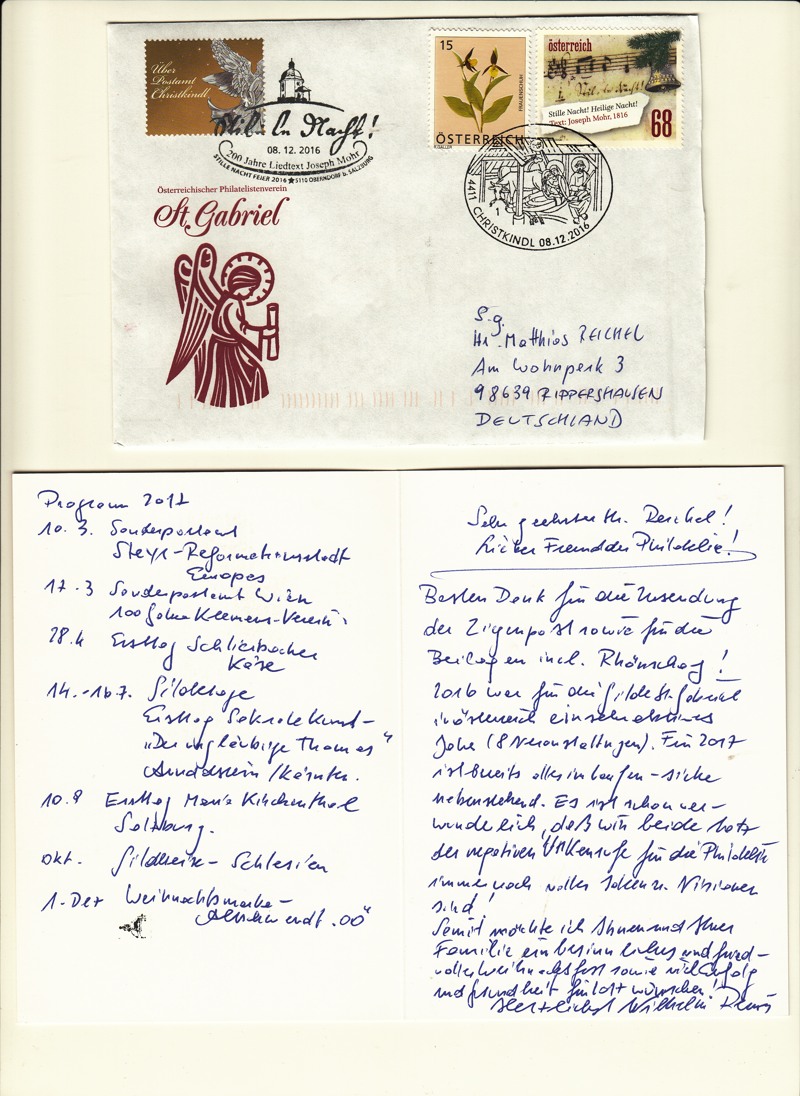 Über
Postamt
Christkindl
Stille Nacht!
08. 12. 2016
200 Jahre Liedtext Joseph Mohr
STILLE NACHT FEIER 2016 ★ 5110 OBERNDORF b. SALZBURG
15
FRAUENSCHUH
ÖSTERREICH
österreich
Stille Nacht! Heilige Nacht!
Text: Joseph Mohr, 1816
68
4411 CHRISTKINDL 08.12.2016
1
Österreichischer Philatelistenverein
St. Gabriel
S.g.
Hr. Matthias REICHEL
Am Wohnperk 3
98639 RIPPERSHAUSEN
DEUTSCHLAND
Program 2017
10. 3. Sonderpostamt
Steyr-Reformationsstadt
Europas
17. 3 Sonderpostamt Wien
100 Jahre Klemens-Verein
28.4 Ersttag Schlierbacher
Käse
14.-16.7. Gildetage
Ersttag Sakrale Kunst-
„Der ungläubige Thomas"
/Kärnten.
10.9 Ersttag Maria Kirchenthal
Salzburg.
Okt. Gildereise - Schlesien
1. Dez Weihnachtsmarke-
"OÖ"
Sehr geehrter Hr. Reichel!
Lieber Freund der Philatelie!
Besten Dank für die Zusendung
der Ziegenpost sowie für die
Beilagen incl. Rhönschaf!
2016 war für die Gilde St. Gabriel
in Österreich ein sehr aktives
Jahr (8 Veranstaltungen). Für 2017
ist bereits alles im Laufen - siehe
nebenstehend. Es ist schon ver-
wunderlich, daß wir beide trotz
der negativen Unkenrufe für die Philatelie
immer noch voller Ideen u. Visionen
sind!
Somit möchte ich Ihnen und Ihrer
Familie ein besinnliches und fried-
volles Weihnachtsfest sowie viel Erfolg
und Gesundheit für 2017 wünschen!
Herzlichst Wilhelm